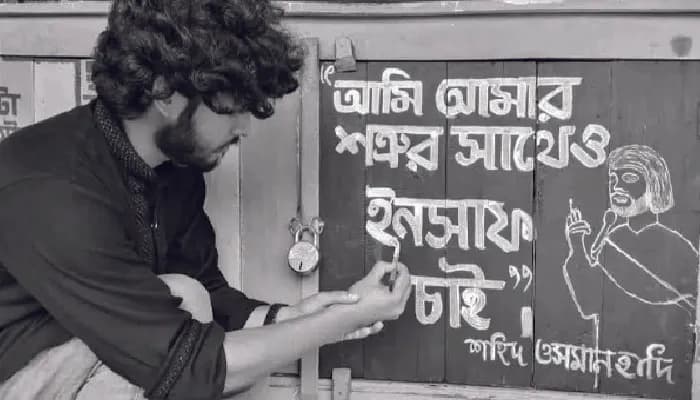 “আমি আমার
শত্রুর সাথেও
ইনসাফ
চাই”।
শহিদ ওসমান হাদি